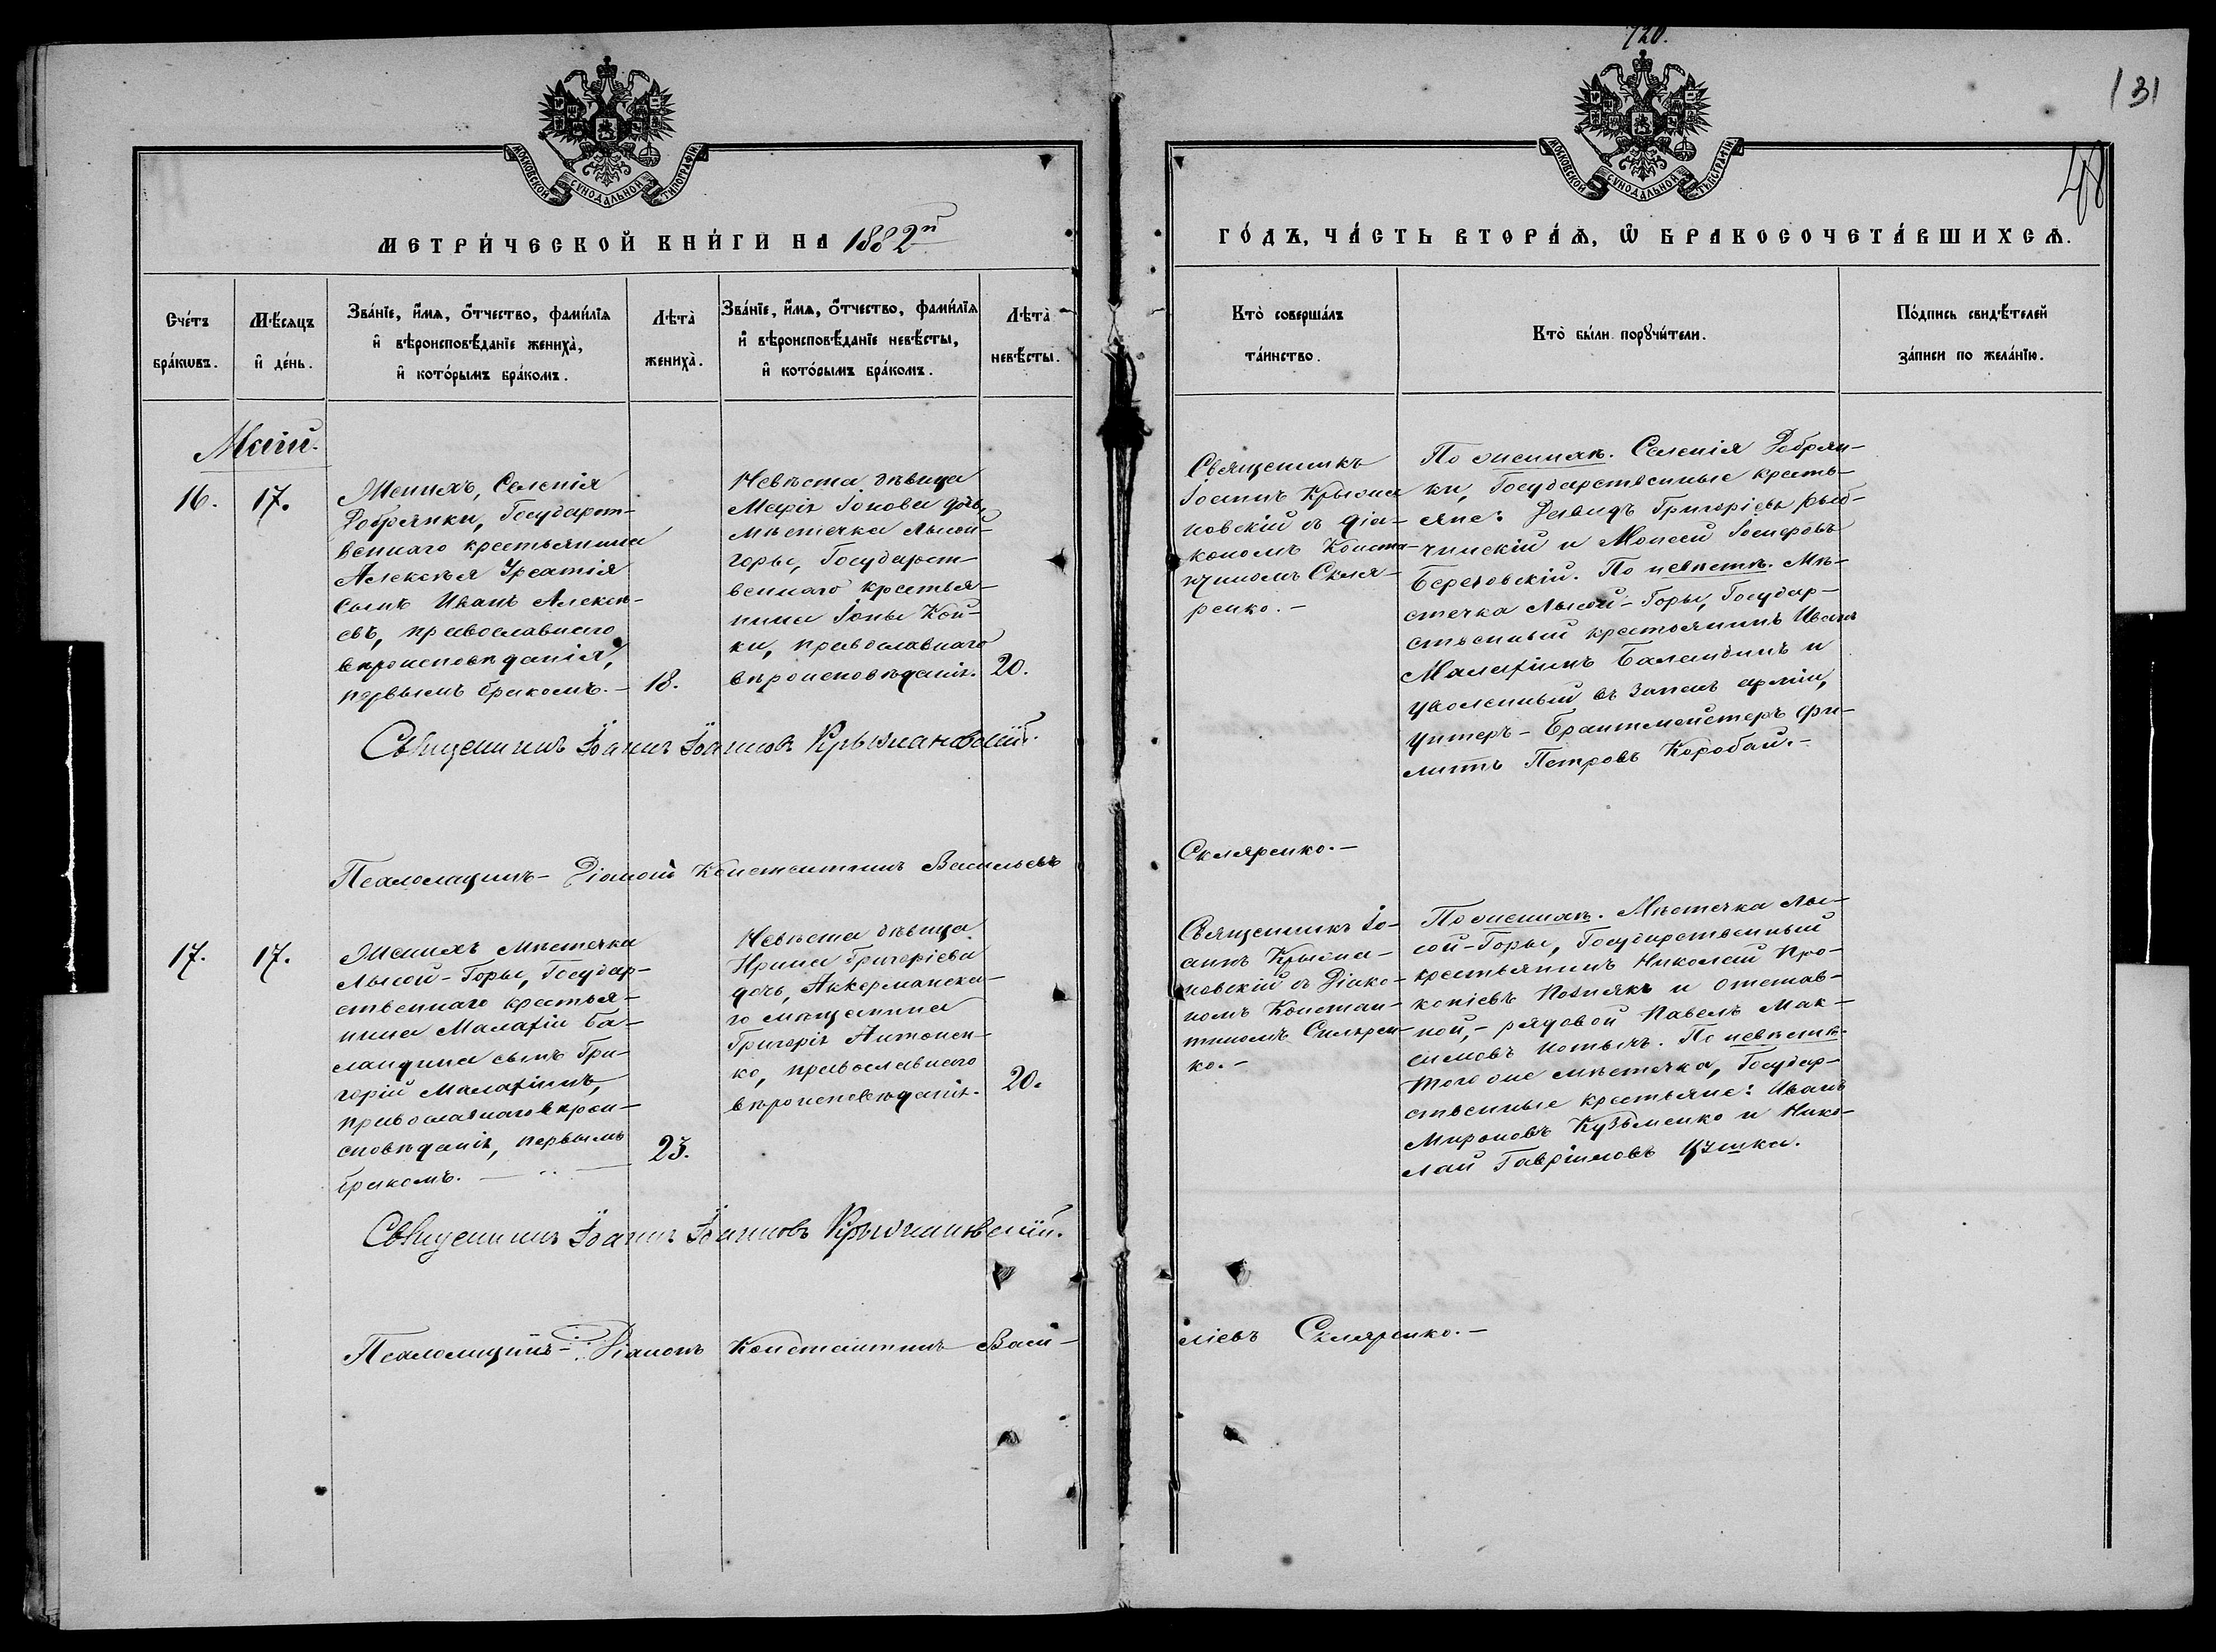 720.
131
48
МОСКОВСКОЙ СѴНОДАЛЬНОЙ ТИПОГРАФІИ
МОСКОВСКОЙ СѴНОДАЛЬНОЙ ТИПОГРАФІИ
МЕТРИ́ЧЕСКОЙ КНИ́ГИ НА 1882й
ГО́ДЪ, ЧА́СТЬ ВТОРА́Ѧ, Ѽ БРАКОСОЧЕТА́ВШИХСѦ.
Сче́тъ бра́кѡвъ.
Мѣ́сяцъ и҆ де́нь.
Зва́нїе, и҆́мѧ, ѻ҆́тчество, фами́лїѧ
и҆ вѣроисповѣ́данїе жениха̀,
и҆ кото́рымъ бра́комъ.
Лѣта̀ жениха̀.
Зва́нїе, и҆́мѧ, ѻ҆́тчество, фами́лїѧ
и҆ вѣроисповѣ́данїе невѣ́сты,
и҆ кото́рымъ бра́комъ.
Лѣта̀ невѣ́сты.
Кто̀ соверша́лъ
та́инство.
Кто̀ бы́ли порꙋчи́тели.
По́дпись свидѣ́телей
за́писи по жела́нїю.
Май.
16.
17.
Женихъ, Селенія
Добрянки, Государст-
веннаго крестьянина
Алексѣя
сынъ Иванъ Алексѣ-
евъ, православнаго
вѣроисповѣданія,
первымъ бракомъ. –
18.
Невѣста дѣвица
Марія Іонова дочь,
мѣстечка Лысой-
горы, Государст-
веннаго крестья-
нина Іоны Кой-
ки, православнаго
вѣроисповѣданія.
20.
Священникъ
Іоаннъ Крыжа-
новскій съ діа-
кономъ Конста-
нтиномъ Скля-
ренко. –
По женихѣ. Селенія Добрян-
ки, Государственные кресть-
яне: Давидъ Григорьевъ Рыб-
чинскій и Моисей Іосифовъ
Березовскій. По невѣстѣ. Мѣ-
стечка Лысой-Горы, Государ-
ственный крестьянинъ Иванъ
Малафіинъ Баландинъ и
уволенный въ запасъ арміи,
унтеръ-Брантмейстеръ Фи-
липъ Петровъ Коробай. –
Священникъ Іоаннъ Іоанновъ Крыжановскій.
Псаломщикъ – Діаконъ Константинъ Васильевъ
Скляренко. –
17.
17.
Женихъ мѣстечка
Лысой-Горы, Государ-
ственнаго крестья-
нина Малафія Ба-
ландина сынъ Гри-
горій Малафіинъ,
православнаго вѣрои-
сповѣданія, первымъ
бракомъ. –
23.
Невѣста дѣвица
Ирина Григоріева
дочь, Аккерманска-
го мѣщанина
Григорія Антонен-
ко, православнаго
вѣроисповѣданія.
20.
Священникъ Іо-
аннъ Крыжа-
новскій съ Діако-
номъ Констан-
тиномъ Скляре-
нко. –
По женихѣ. Мѣстечка Лы-
сой-Горы, Государственный
крестьянинъ Николай Про-
копіевъ Познякъ и отстав-
ной, – рядовой Павелъ Мак-
симовъ . По невѣстѣ.
Того же мѣстечка, Государ-
ственные крестьяне: Иванъ
Мироновъ Кузьменко и Нико-
лай Гавріиловъ
Священникъ Іоаннъ Іоанновъ Крыжановскій.
Псаломщикъ – Діаконъ Константинъ Васи-
ліевъ Скляренко. –